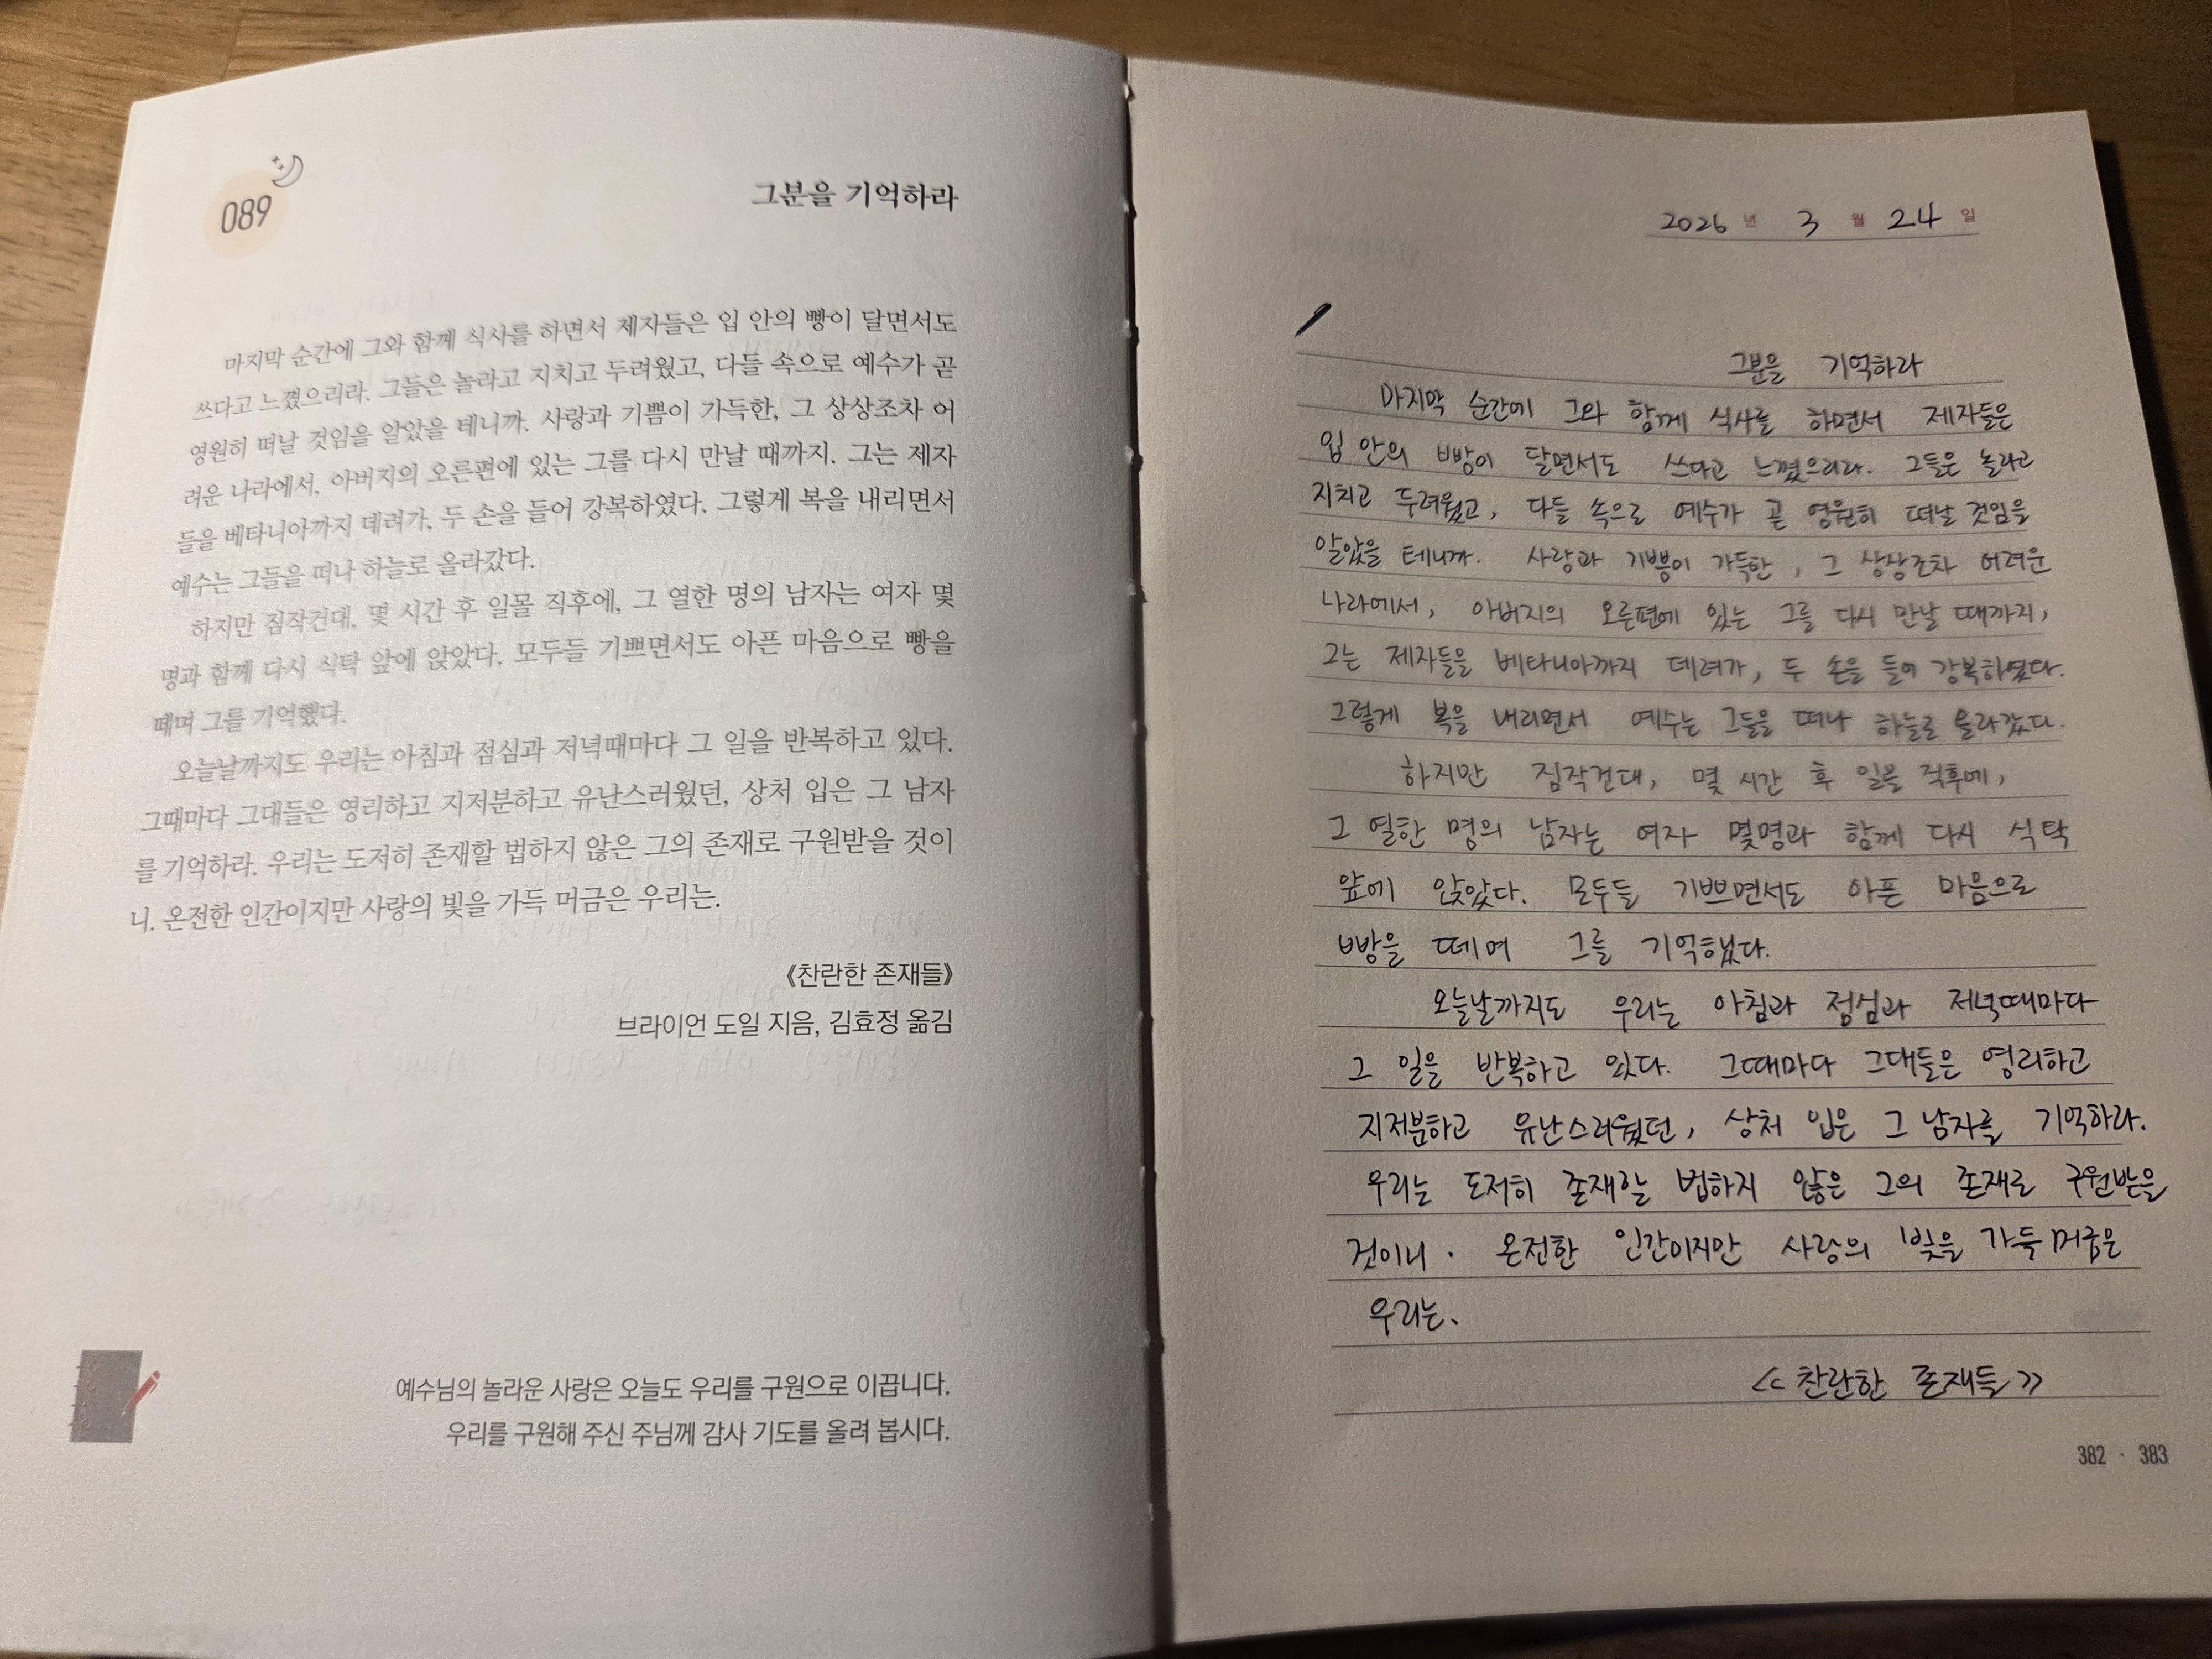 089
그분을 기억하라
마지막 순간에 그와 함께 식사를 하면서 제자들은 입 안의 빵이 달면서도
쓰다고 느꼈으리라. 그들은 놀라고 지치고 두려웠고, 다들 속으로 예수가 곧
영원히 떠날 것임을 알았을 테니까. 사랑과 기쁨이 가득한, 그 상상조차 어
려운 나라에서, 아버지의 오른편에 있는 그를 다시 만날 때까지. 그는 제자
들을 베타니아까지 데려가, 두 손을 들어 강복하였다. 그렇게 복을 내리면서
예수는 그들을 떠나 하늘로 올라갔다.
하지만 짐작건대, 몇 시간 후 일몰 직후에, 그 열한 명의 남자는 여자 몇
명과 함께 다시 식탁 앞에 앉았다. 모두들 기쁘면서도 아픈 마음으로 빵을
떼며 그를 기억했다.
오늘날까지도 우리는 아침과 점심과 저녁때마다 그 일을 반복하고 있다.
그때마다 그대들은 영리하고 지저분하고 유난스러웠던, 상처 입은 그 남자
를 기억하라. 우리는 도저히 존재할 법하지 않은 그의 존재로 구원받을 것이
니. 온전한 인간이지만 사랑의 빛을 가득 머금은 우리는.
《찬란한 존재들》
브라이언 도일 지음, 김효정 옮김
예수님의 놀라운 사랑은 오늘도 우리를 구원으로 이끕니다.
우리를 구원해 주신 주님께 감사 기도를 올려 봅시다.
2026 년 3 월 24 일
그분을 기억하라
마지막 순간에 그와 함께 식사를 하면서 제자들은
입 안의 빵이 달면서도 쓰다고 느꼈으리라. 그들은 놀라고
지치고 두려웠고, 다들 속으로 예수가 곧 영원히 떠날 것임을
알았을 테니까. 사랑과 기쁨이 가득한, 그 상상조차 어려운
나라에서, 아버지의 오른편에 있는 그를 다시 만날 때까지,
그는 제자들을 베타니아까지 데려가, 두 손을 들어 강복하였다.
그렇게 복을 내리면서 예수는 그들을 떠나 하늘로 올라갔다.
하지만 짐작건대, 몇 시간 후 일몰 직후에,
그 열한 명의 남자는 여자 몇명과 함께 다시 식탁
앞에 앉았다. 모두들 기쁘면서도 아픈 마음으로
빵을 떼며 그를 기억했다.
오늘날까지도 우리는 아침과 점심과 저녁때마다
그 일을 반복하고 있다. 그때마다 그대들은 영리하고
지저분하고 유난스러웠던, 상처 입은 그 남자를 기억하라.
우리는 도저히 존재할 법하지 않은 그의 존재로 구원받을
것이니. 온전한 인간이지만 사랑의 빛을 가득 머금은
우리는.
<<찬란한 존재들>>
382 · 383